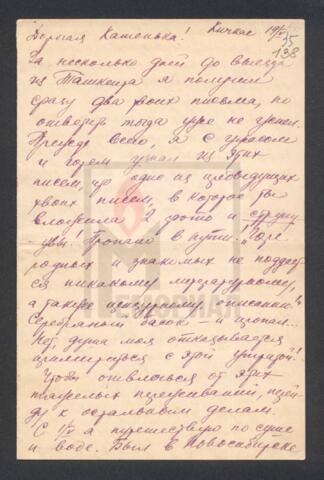 Дорогая Катенька! Кичкас 19/V
35
138
За несколько дней до выезда
из Ташкента я получил
сразу два твоих письма, но
ответить тогда уже не успел.
Прежде всего, я с ужасом
и горем узнал из этих
писем, что одно из предыдущих
твоих писем, в которое ты
вложила 2 фото и
увы! Пропало в пути. "Горе
родных и знакомых не поддает
ся никакому литературному,
а также нецензурному описанию".
Серебряный басок – и пропал...
Нет, душа моя отказывается
примириться с этой утратой!
Чтобы отвлечься от этих
тяжелых переживаний, перей
ду к остальным делам.
С 1/V я путешествую по суше
и воде. Был в Новосибирске
МЕМОРИАЛ